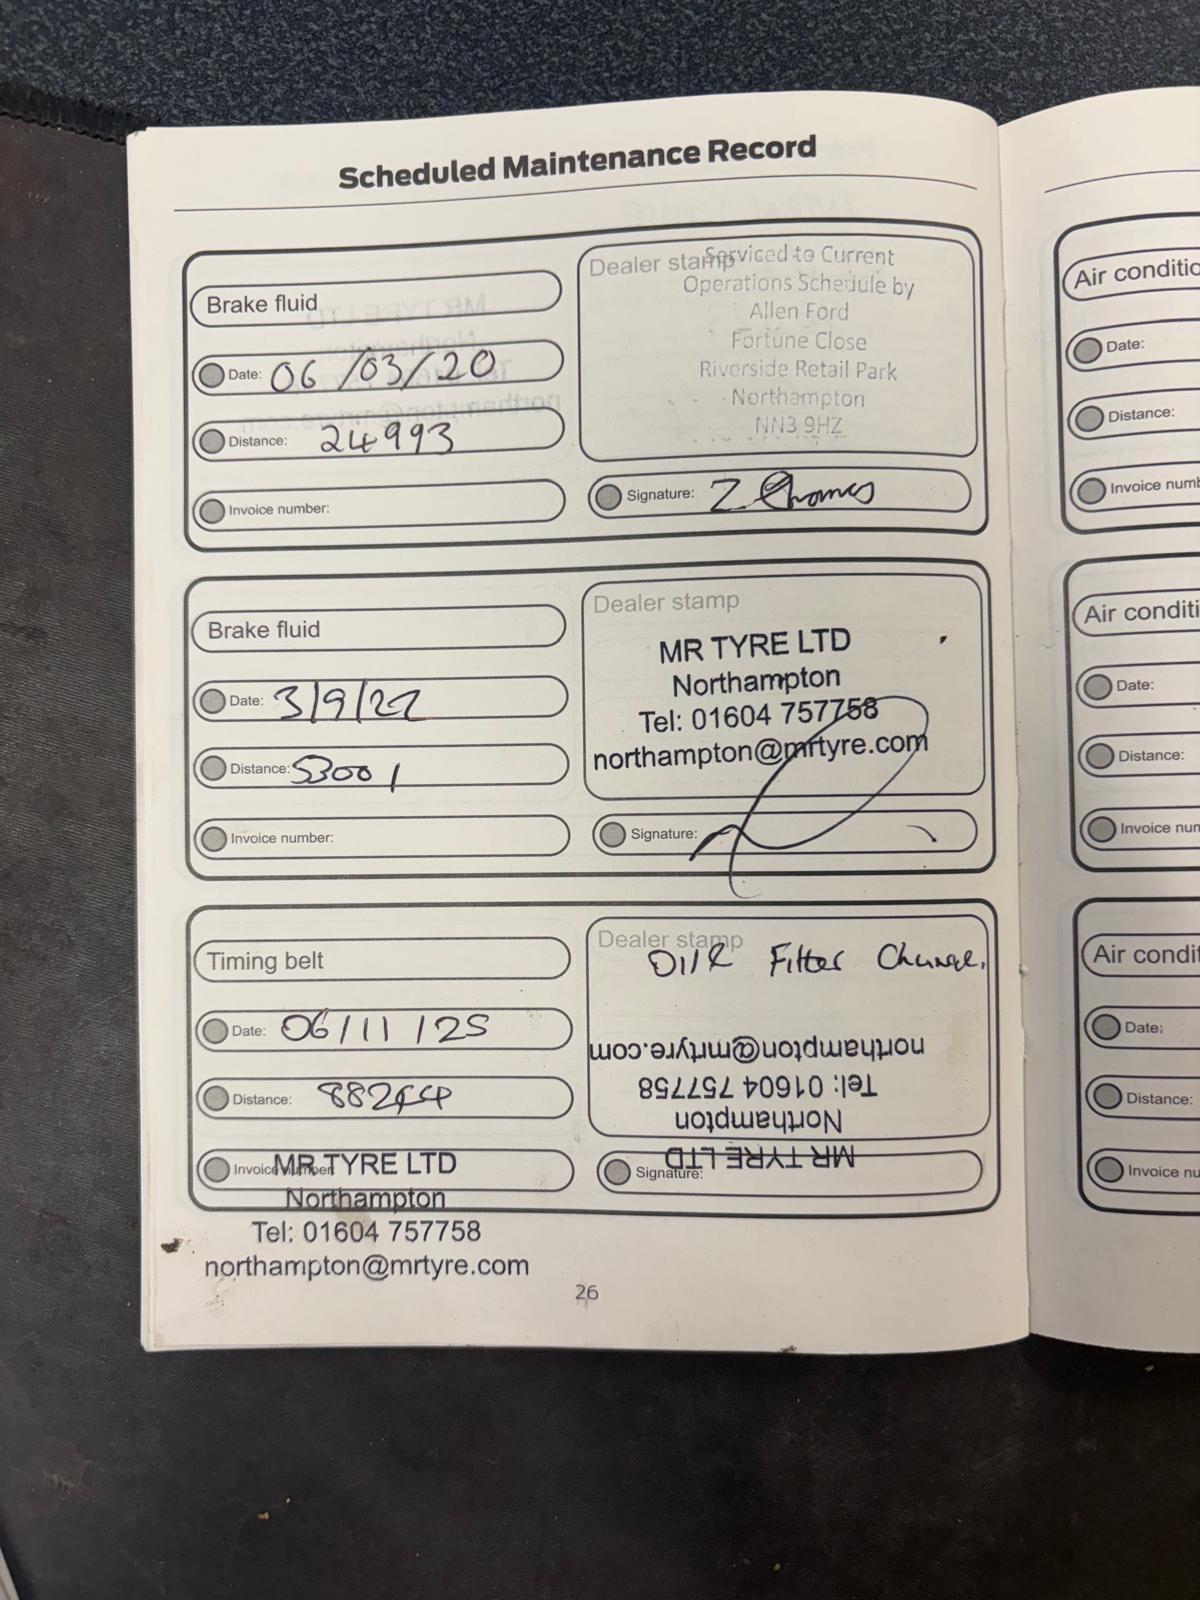 Scheduled Maintenance Record
Brake fluid
Date: 06/03/20
Distance: 24993
Invoice number:
Dealer stamp
Serviced to Current
Operations Schedule by
Allen Ford
Fortune Close
Riverside Retail Park
Northampton
NN3 9HZ
Signature:
Brake fluid
Date: 3/9/22
Distance: 53001
Invoice number:
Dealer stamp
MR TYRE LTD
Northampton
Tel: 01604 757758
northampton@mrtyre.com
Signature:
Timing belt
Date: 06/11/25
Distance:
Invoice number:
MR TYRE LTD
Northampton
Tel: 01604 757758
northampton@mrtyre.com
Dealer stamp
Oil & Filter Change.
MR TYRE LTD
Northampton
Tel: 01604 757758
northampton@mrtyre.com
Signature:
26
Air
Date:
Distance:
Invoice
Air
Date:
Distance:
Invoice
Air
Date:
Distance:
Invoice